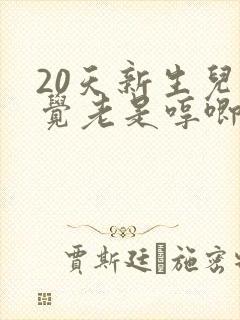 20天新生兒
覺老是哼唧
賈斯廷 施密特